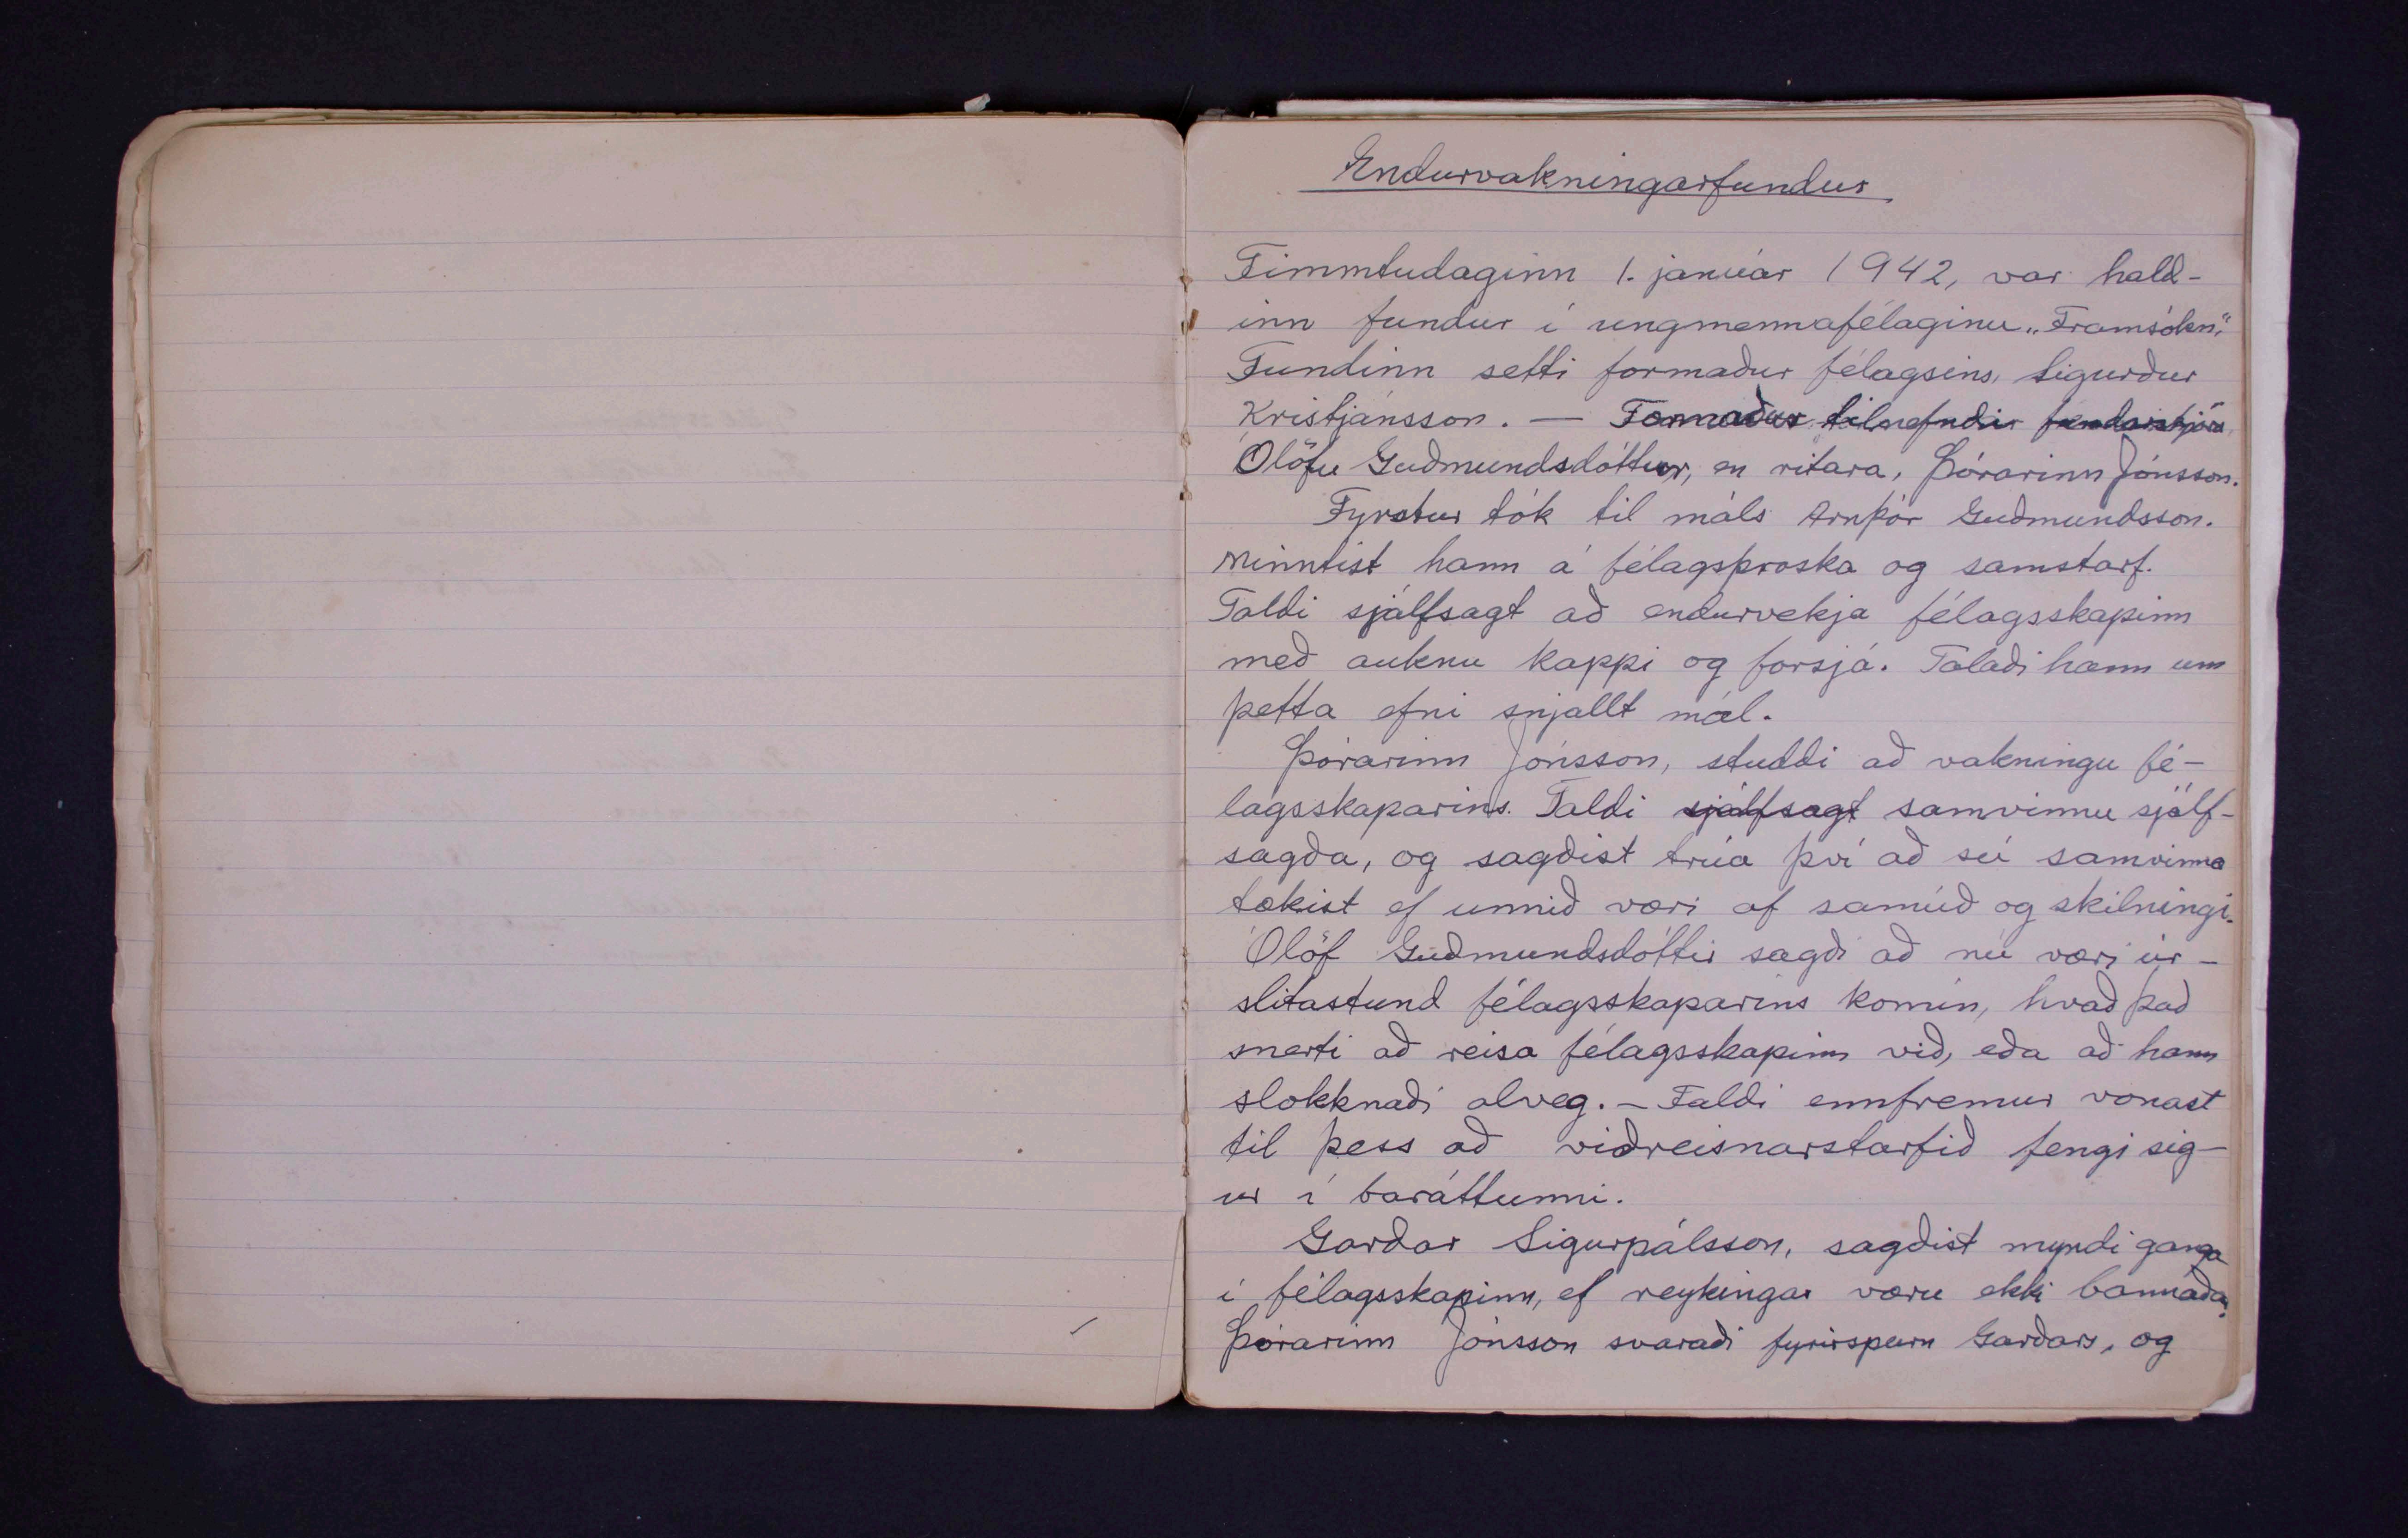 Endurvakningarfundur
Fimmtudaginn 1. janúar 1942, var hald-
inn fundur í ungmennafélaginu „Framsókn“.
Fundinn setti formaður félagsins, Sigurður
Kristjánsson. — Formaður tilnefndir fundarstjóra,
Ólöfu Guðmundsdóttur, en ritara, Þórarinn Jónsson.
Fyrstur tók til máls Arnþór Guðmundsson.
Minntist hann á félagsþroska og samstarf.
Taldi sjálfsagt að endurvekja félagsskapinn
með auknu kappi og forsjá. Talaði hann um
þetta efni snjallt mál.
Þórarinn Jónsson, studdi að vakningu fé-
lagsskaparins. Taldi sjálfsagt samvinnu sjálf-
sagða, og sagðist trúa því að sú samvinna
tækist ef unnið væri af samúð og skilningi.
Ólöf Guðmundsdóttir sagði að nú væri úr-
slitastund félagsskaparins komin, hvað það
snerti að reisa félagsskapinn við, eða að hann
slokknaði alveg. — Taldi ennfremur vonast
til þess að viðreisnarstarfið fengi sig-
ur í baráttunni.
Garðar Sigurpálsson, sagðist myndi ganga
í félagsskapinn, ef reykingar væru ekki bannaðar.
Þórarinn Jónsson svaraði fyrirspurn Garðars, og